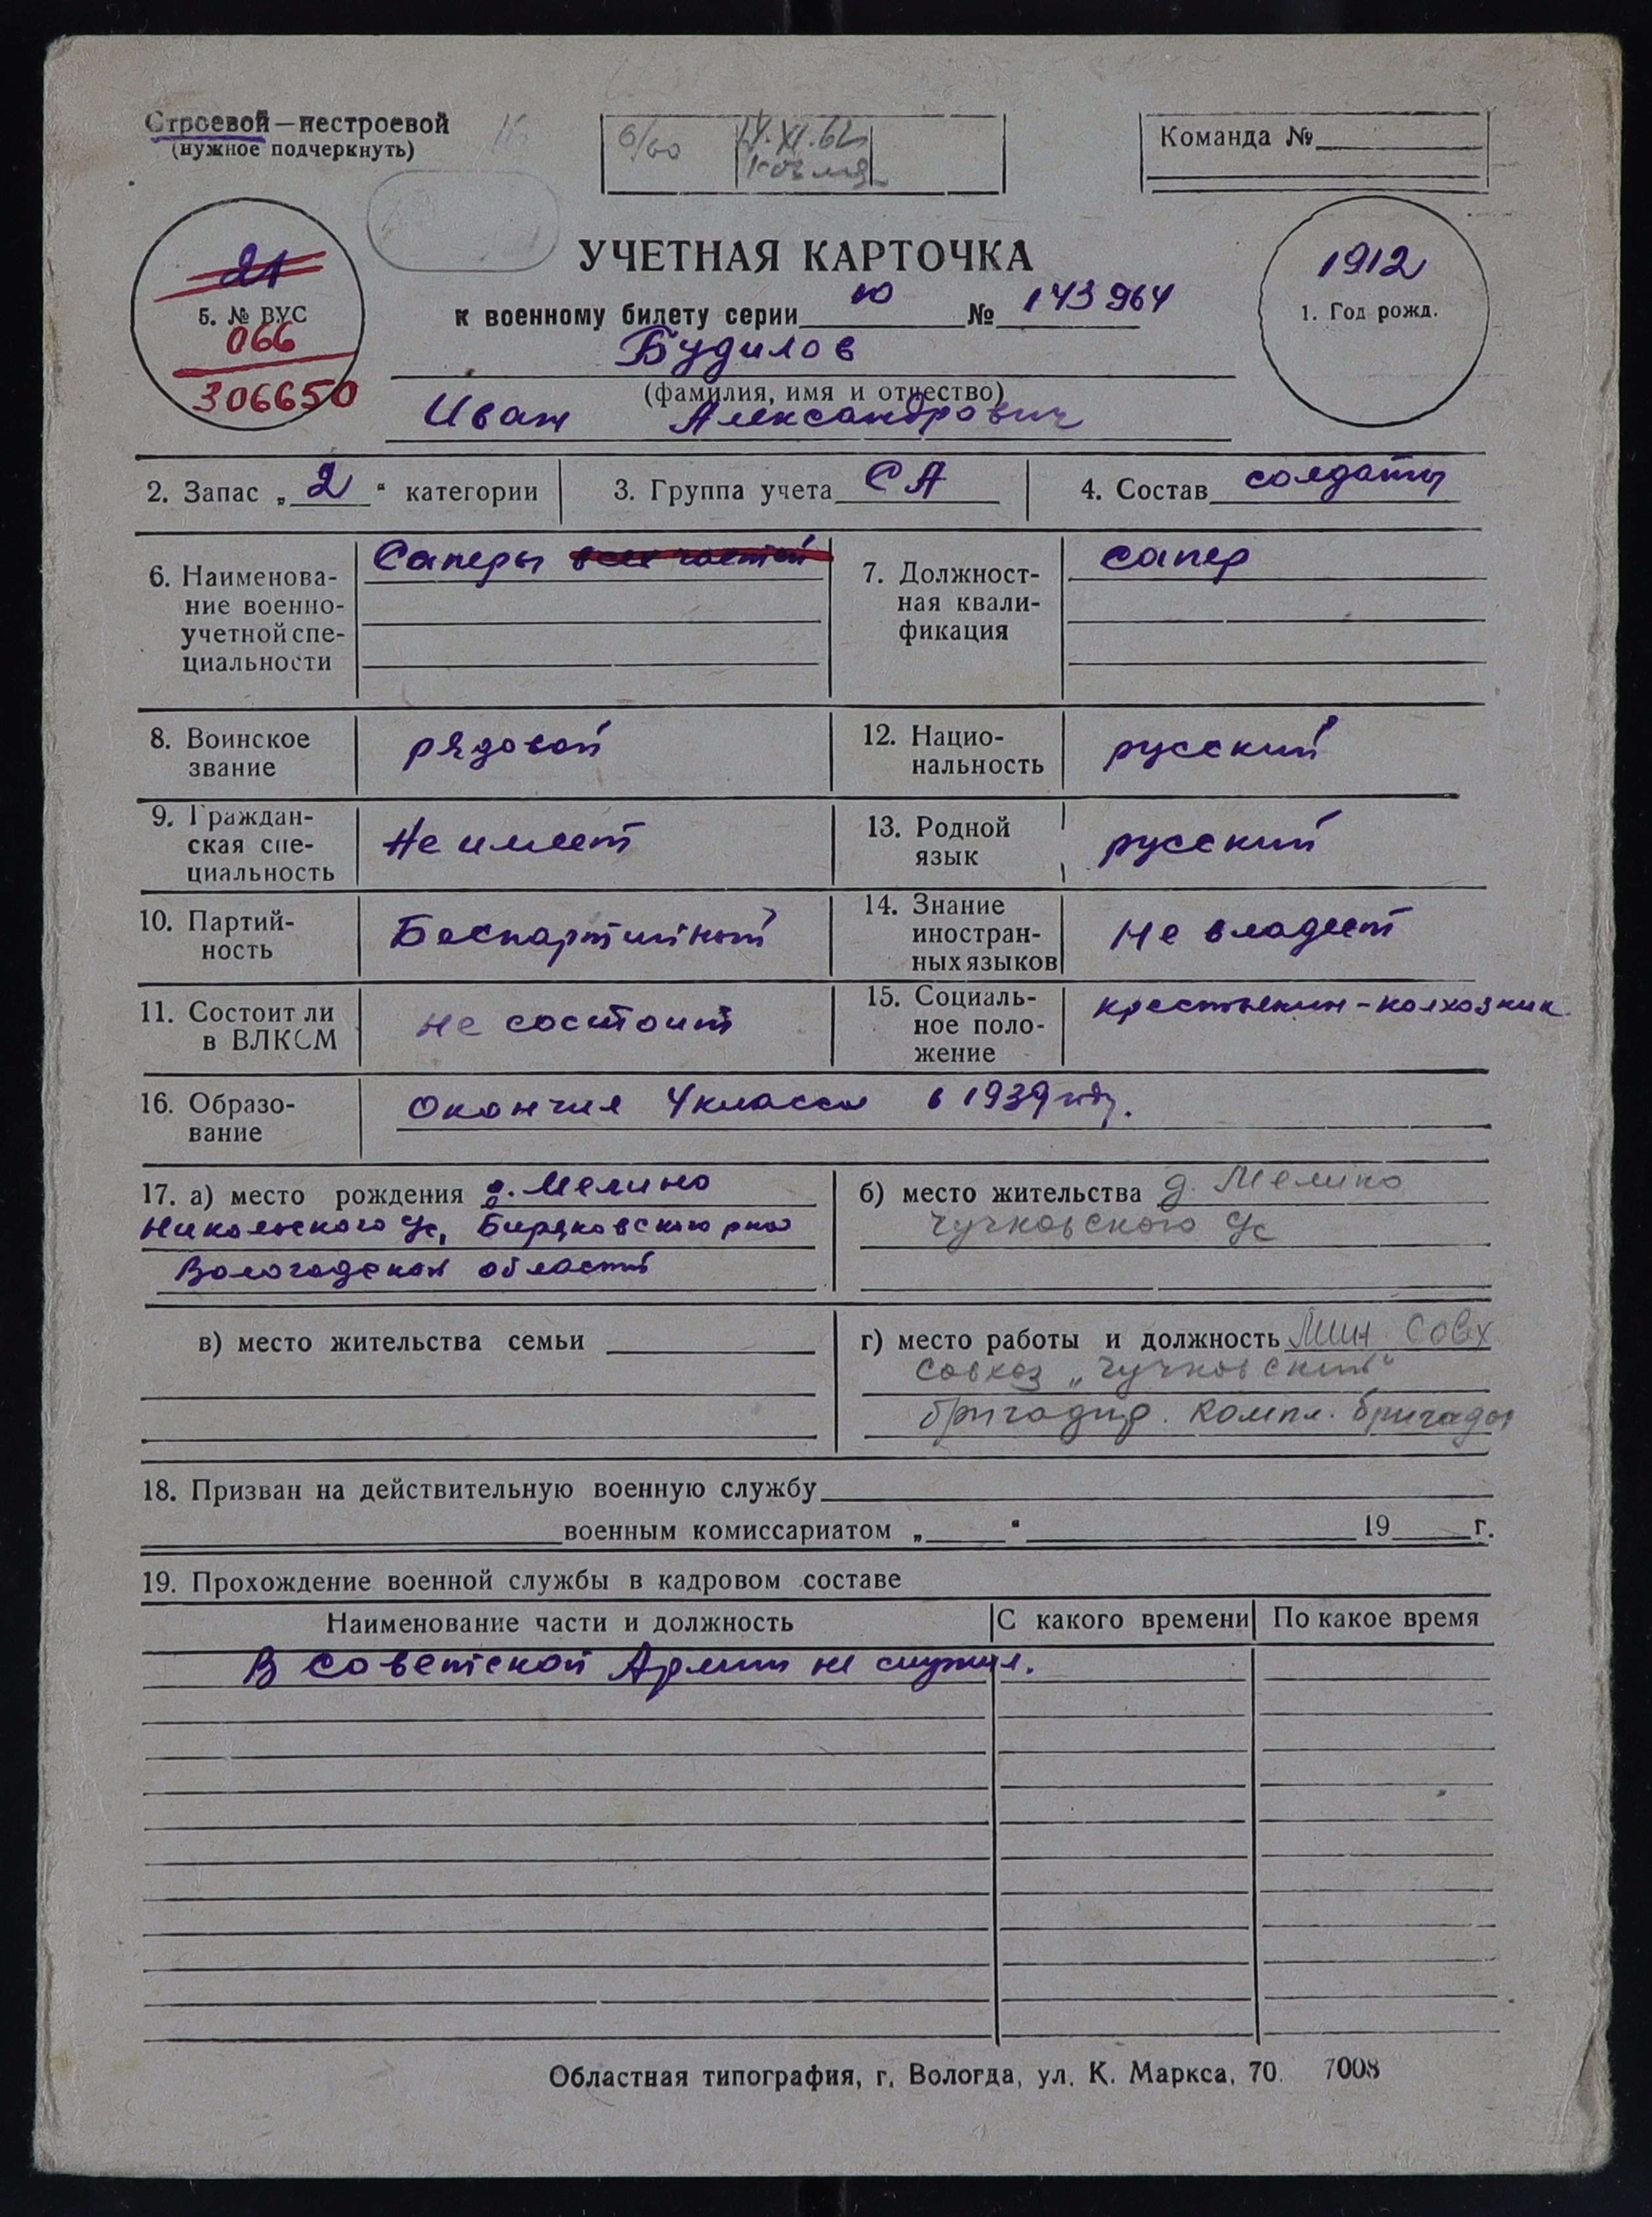 Строевой—нестроевой
(нужное подчеркнуть)
6/60
14.XI.62
Команда №
21
5. № ВУС
066
306650
УЧЕТНАЯ КАРТОЧКА
к военному билету серии Ю № 143964
1912
1. Год рожд.
Будилов
(фамилия, имя и отчество)
Иван Александрович
2. Запас „2“ категории
3. Группа учета СА
4. Состав солдаты
6. Наименова-
ние военно-
учетной спе-
циальности
Саперы всех частей
7. Должност-
ная квали-
фикация
сапер
8. Воинское
звание
рядовой
12. Нацио-
нальность
русский
9. Граждан-
ская спе-
циальность
Не имеет
13. Родной
язык
русский
10. Партий-
ность
Беспартийный
14. Знание
иностран-
ных языков
Не владеет
11. Состоит ли
в ВЛКСМ
не состоит
15. Социаль-
ное поло-
жение
крестьянин-колхозник
16. Образо-
вание
Окончил 4 класса в 1939 году.
17. а) место рождения д. Мелино
Никольского с/с, Бирякивского р-на
Вологодской области
б) место жительства д. Мелино
Чучковского с/с
в) место жительства семьи
г) место работы и должность Мин. Совх
совхоз „Чучковский“
бригадир. компл. бригады
18. Призван на действительную военную службу
военным комиссариатом „ “ 19 г.
19. Прохождение военной службы в кадровом составе
Наименование части и должность
С какого времени
По какое время
В Советской Армии не служил.
Областная типография, г. Вологда, ул. К. Маркса, 70. 7008